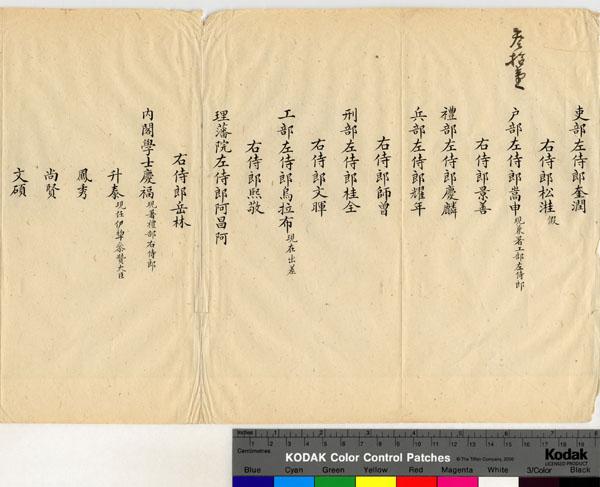 叁拾壹
吏部左侍郎奎潤
右侍郎松溎假
户部左侍郎嵩申現兼署工部左侍郎
右侍郎景善
禮部左侍郎慶麟
兵部左侍郎耀年
右侍郎師曾
刑部左侍郎桂全
右侍郎文暉
工部左侍郎烏拉布現在出差
右侍郎熙敬
理藩院左侍郎阿昌阿
右侍郎岳林
内閣學士慶福現署禮部右侍郎
升泰現任伊犂參贊大臣
鳳秀
尚賢
文碩
Inches 1 2 3 4 5 6 7 8
Centimetres
KODAK Color Control Patches © The Tiffen Company, 2000
Kodak
LICENSED PRODUCT
Blue Cyan Green Yellow Red Magenta White 3/Color Black